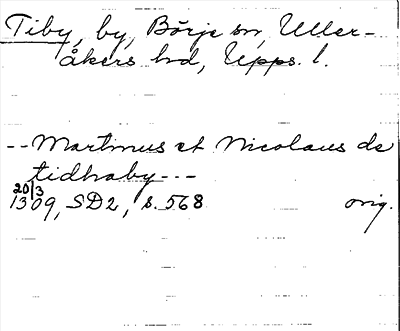 Tiby, by, Börje sn, Uller-
åkers hd, Upps. l.
-- Martinus et Nicolaus de
tidhaby ---
20/3
1309, SD2, s. 568 orig.